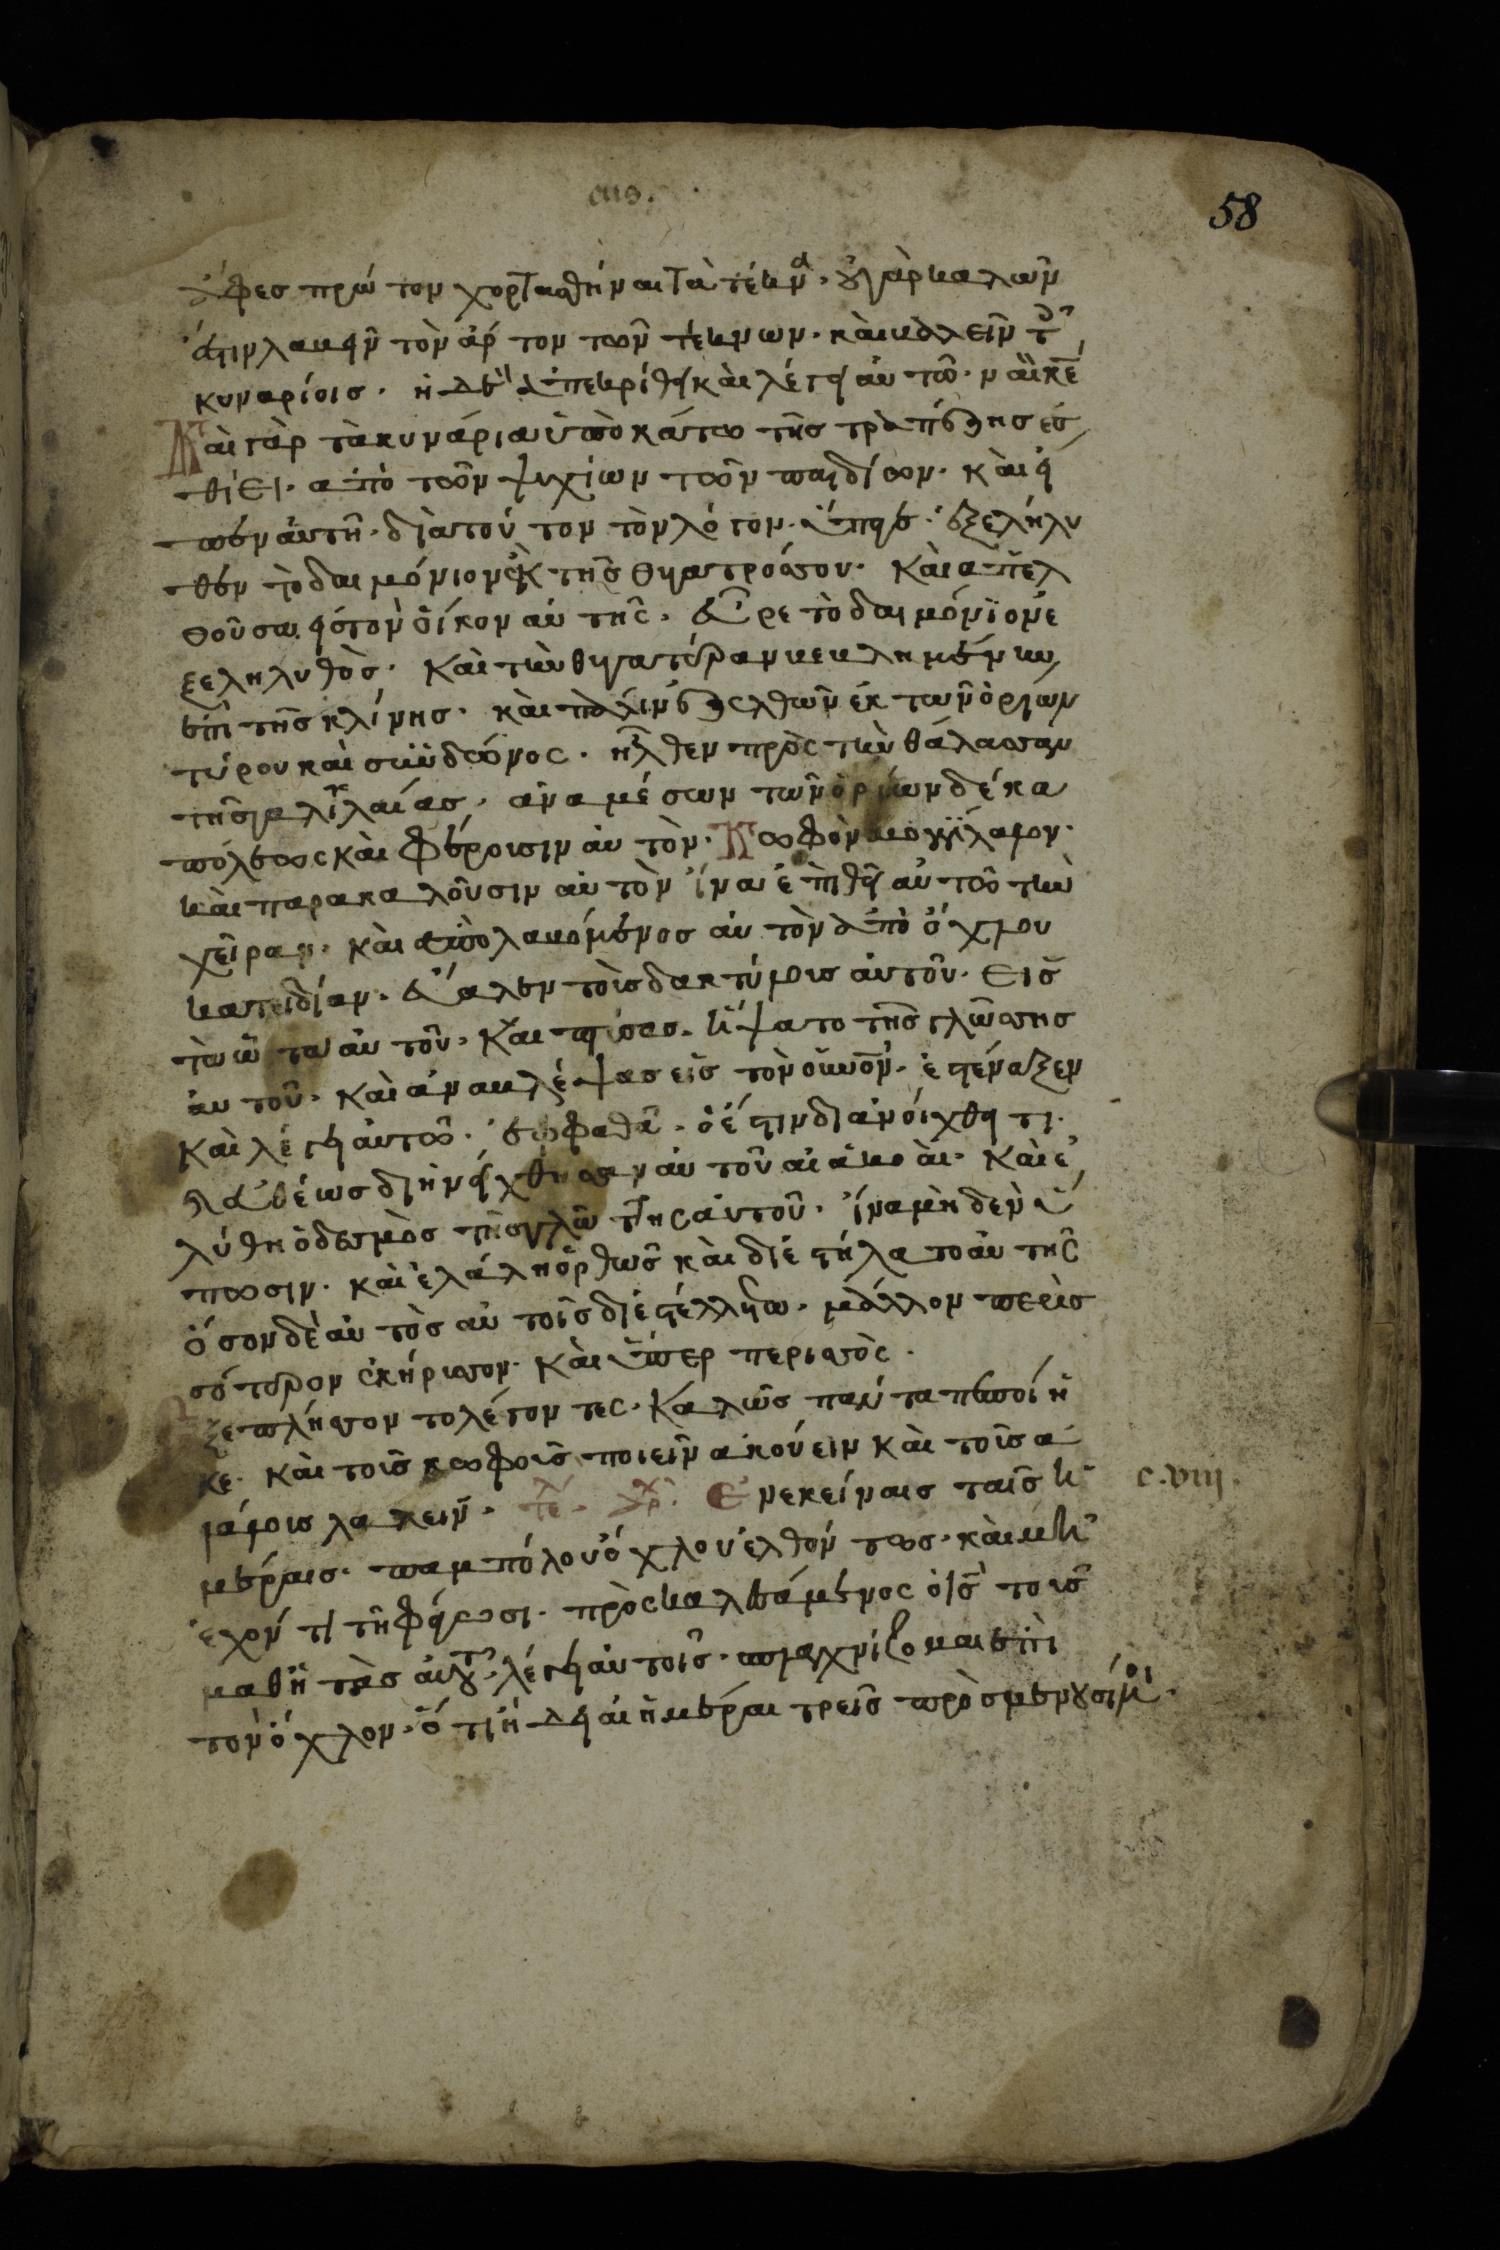 58
ἄφες πρώτον χορτασθήναι τὰ τέκνα. οὐ γὰρ καλὼν
ἐστιν λαβεῖν τὸν ἄρτον τῶν τέκνων. καὶ βαλεῖν τοῖς
κυναρίοις. ἡ δὲ ἀπεκρίθη καὶ λέγει αὐτῶ. ναὶ κε
Καὶ γὰρ τὰ κυνάρια ὑποκάτω τῆς τραπέζης ἐσ
θίει. απὸ τῶν ψυχίων τῶν παιδίων. καὶ εἶ
πεν αὐτῆ. διὰ τούτον τὸν λόγον. ὕπαγε. ἐξελήλυ
θεν τὸ δαιμόνιον ἐκ τῆς θυγατρός σου. Καὶ απελ
θοῦσα εἰς τὸν οἶκον αὐτῆς. εὗρε τὸ δαιμόνιον ἐ
ξεληλυθὸς. Καὶ τὴν θυγατέραν βεβλημένην
ἐπὶ τῆς κλίνης. καὶ πάλιν ἐξελθὼν ἐκ τῶν ὁρίων
τύρου καὶ σιδῶνος. ἦλθεν πρὸς τὴν θάλασσαν
τῆς γαλιλαίας. ἀνα μέσων τῶν ὁρίων δέκα
πόλεως καὶ φέρουσιν αὐτὸν. Κωφὸν μογγίλαλον.
καὶ παρακαλοῦσιν αὐτὸν ἵνα ἐπιθῆ αὐτῶ τὴν
χεῖραν. καὶ ἀπολαβόμενος αὐτὸν ἀπὸ ὄχλου
κατ ιδίαν. ἔβαλεν τοὶς δακτύλοις αὐτοῦ. Εἰς
τὰ ὦτα αὐτοῦ. Καὶ πτύσας. ἥψατο τῆς γλώσσης
αὐτοῦ. καὶ ἀναβλέψας εἰς τὸν οὐνον. ἐστέναξεν
Καὶ λέγει αὐτῶ. ἐφφαθὰ. ὅ ἐστιν διανοίχθητι.
καὶ εὐθέως διηνοίχθησαν αὐτοῦ αἱ ἀκοαὶ. Καὶ ἐ
λύθη ὁ δεσμὸς τῆς γλώττης αὐτοῦ. ἵνα μὴδενὶ εἴ
πωσιν. καὶ ἐλάλη ὀρθῶς καὶ διεστήλατο αὐτῆς
ὅσον δὲ αὐτὸς αὐτοῖς διεστέλλετω. μάλλον περισ
σότερον ἐκήρισσον. Καὶ ὕπερ περισσὸς.
ἐξεπλήσσοντο λέγοντες. Καλῶς πάντα πεποίη
κε. καὶ τοῖς κωφοῖς ποιεῖν ακούειν καὶ τοῖς α
λάλοις λαλεῖν. τέ. ἀρ. Εν εκείναις ταῖς ἡ
μέραις. παμπόλου ὄχλου ἐλθόντως. καὶ μὴ
ἐχόντι τῆ φάγωσι. πρὸσκαλεσάμενος ὁ ις τοὶς
μαθητὰς αὐτοῦ. λέγει αὐτοῖς. σπλαχνίζομαι ἐπὶ
τον ὄχλον. ὅτι ἤδη αἱ ἡμέραι τρεῖς πρὸσμένουσί μοι.
c. viii.